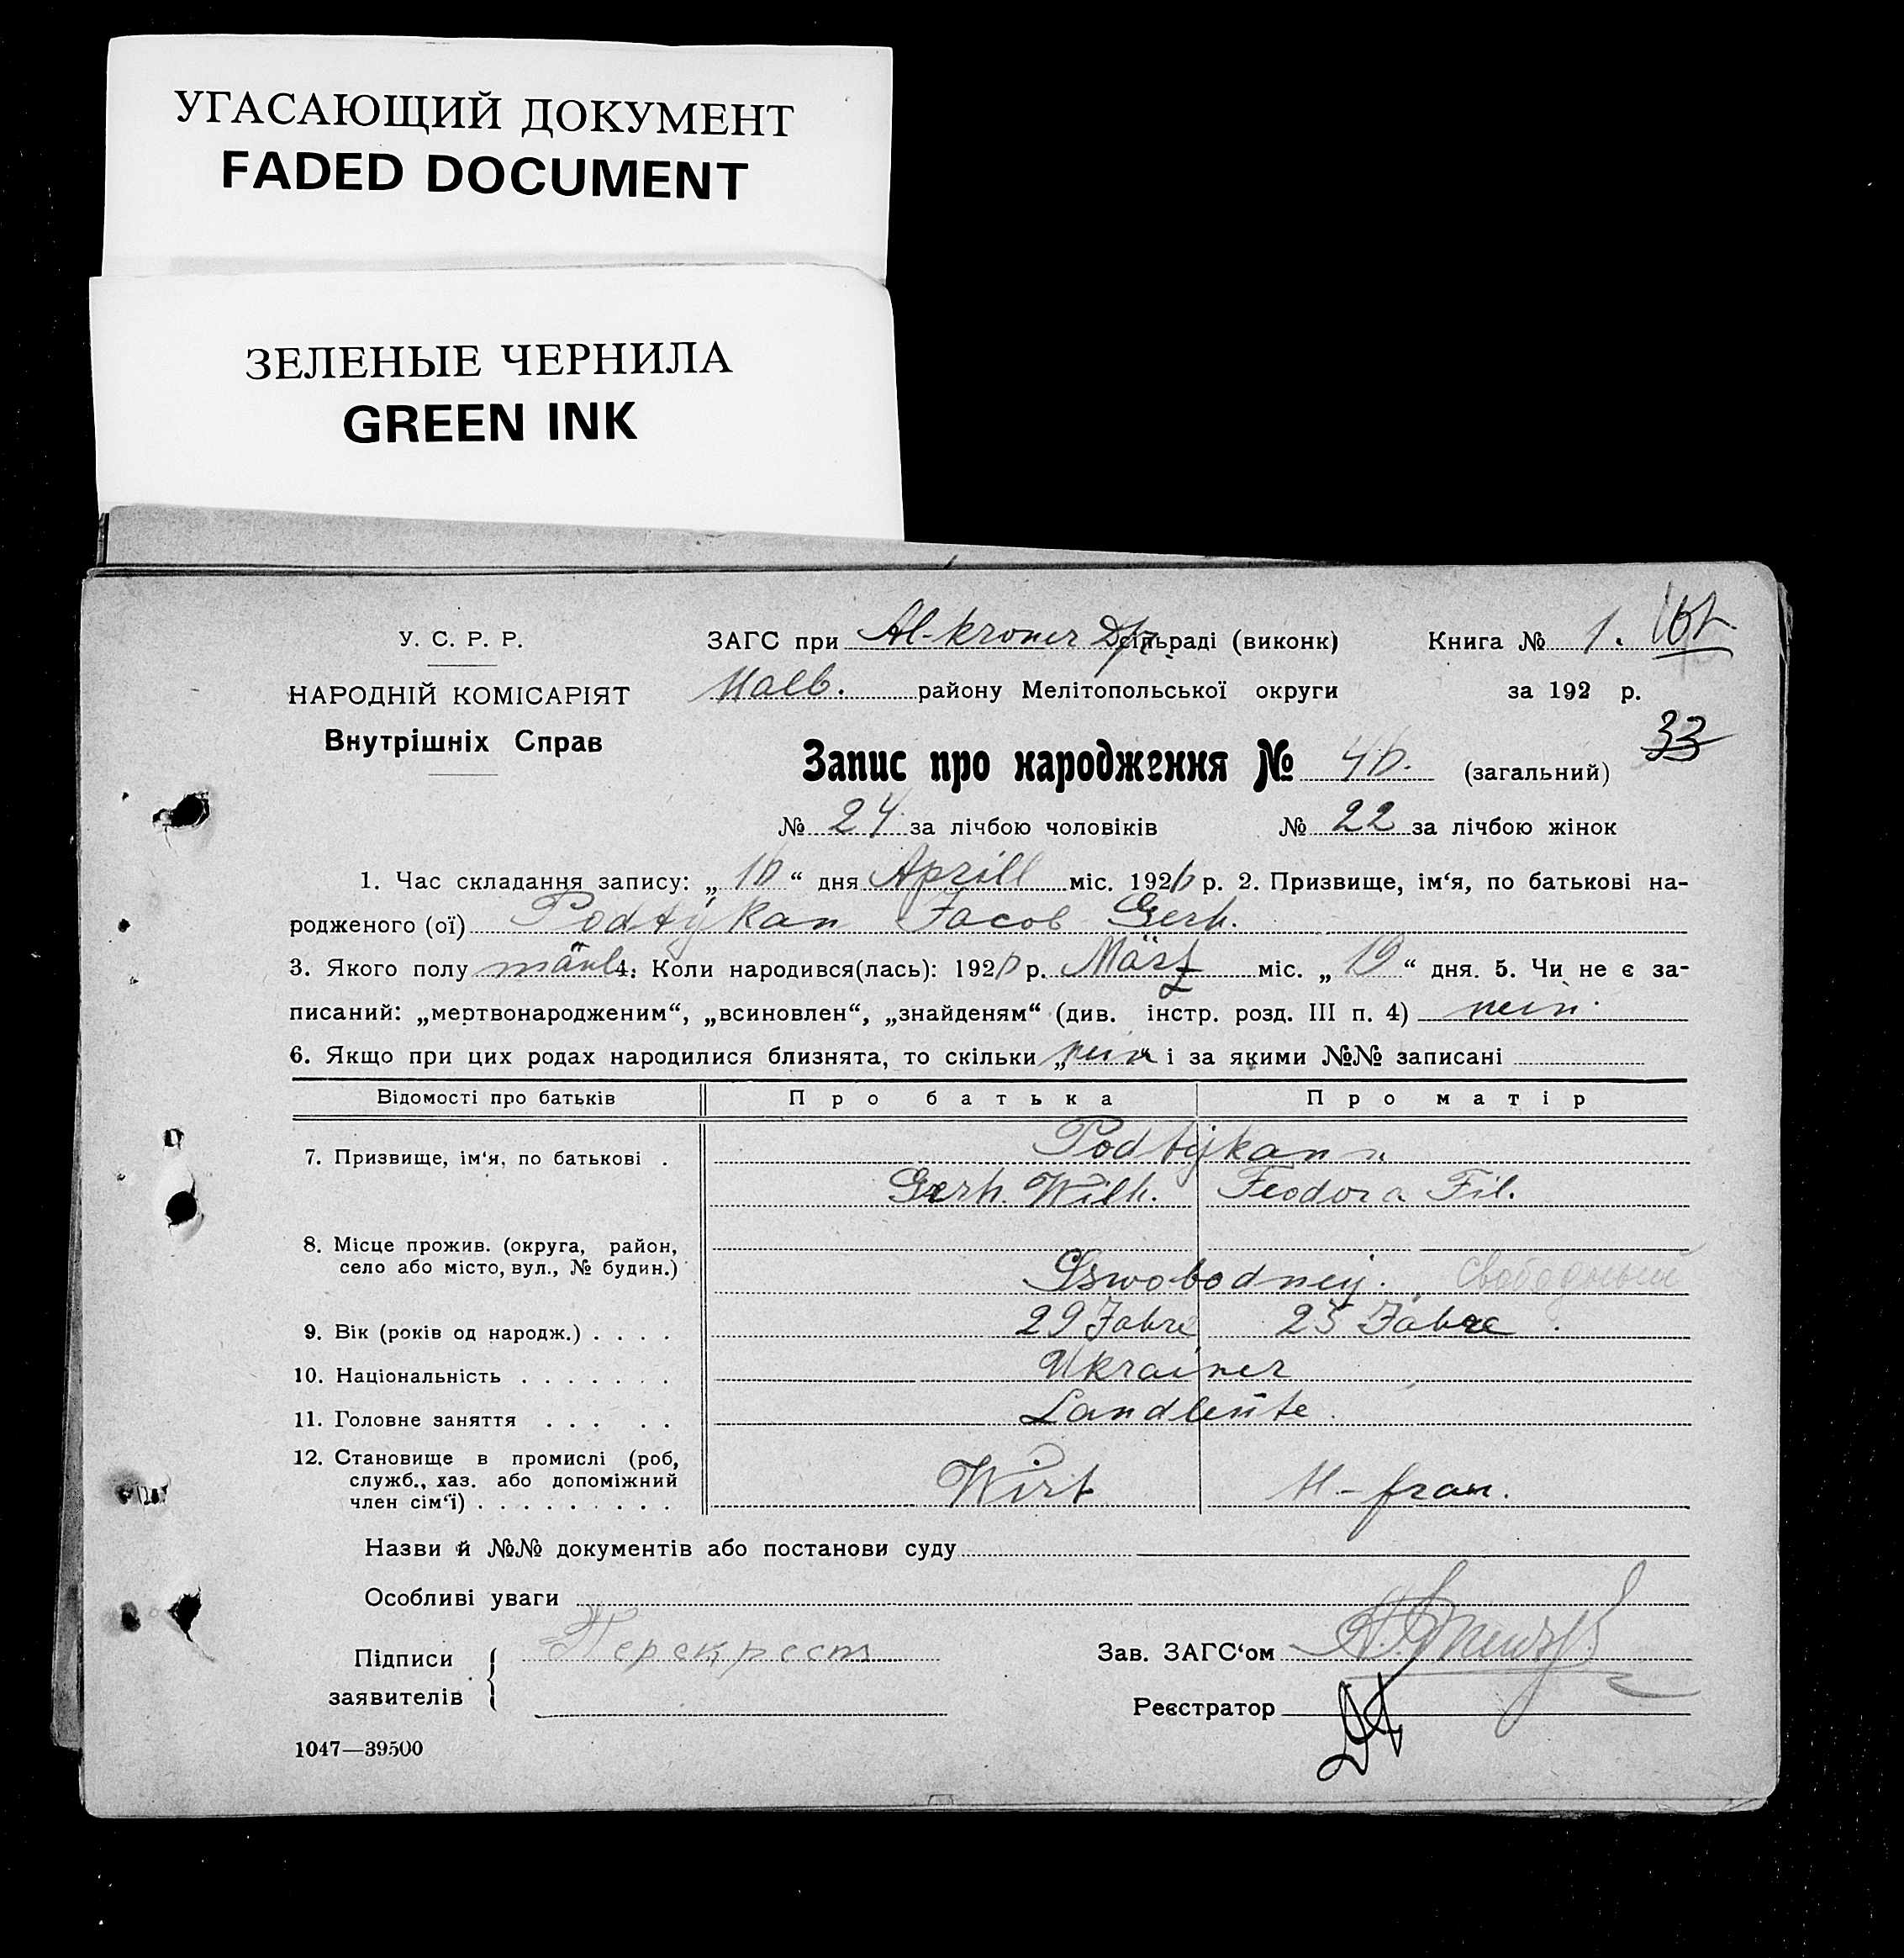 УГАСАЮЩИЙ ДОКУМЕНТ
FADED DOCUMENT
ЗЕЛЕНЫЕ ЧЕРНИЛА
GREEN INK
У. С. Р. Р.
НАРОДНІЙ КОМІСАРІЯТ
Внутрішніх Справ
ЗАГС при Al-kroner сільраді (виконк) Книга № 1.
Halb. району Мелітопольської округи за 192 р.
33
Запис про народження № 46. (загальний)
№ 24 за лічбою чоловіків № 22 за лічбою жінок
1. Час складання запису: „ 16 “ дня Aprill міс. 1926 р. 2. Призвище, ім‘я, по батькові на-
родженого (ої) Podtÿkan Jacob Gerh.
3. Якого полу mänl. 4. Коли народився(лась): 1926 р. März міс. „ 19 “ дня. 5. Чи не є за-
писаний: „мертвонародженим“, „всиновлен“, „знайденям“ (див. інстр. розд. III п. 4) nein.
6. Якщо при цих родах народилися близнята, то скільки „ nein і за якими №№ записані
Відомості про батьків Про батька Про матір
7. Призвище, ім‘я, по батькові . Podtÿkan
Gerh. Wilh. Feodora Fil.
8. Місце прожив. (округа, район,
село або місто, вул., № будин.) Sswobodney. Свободный
9. Вік (років од народж.) . . . . 29 Jahre 25 Jahre .
10. Національність . . . . . . . Ukrainer
11. Головне заняття . . . . . Landleute.
12. Становище в промислі (роб,
служб., хаз. або допоміжний
член сім‘ї) . . . . . . . . . Wirt H-frau.
Назви й №№ документів або постанови суду
Особливі уваги
Підписи
заявителів
Перекрест
Зав. ЗАГС‘ом
Реєстратор
1047—39500